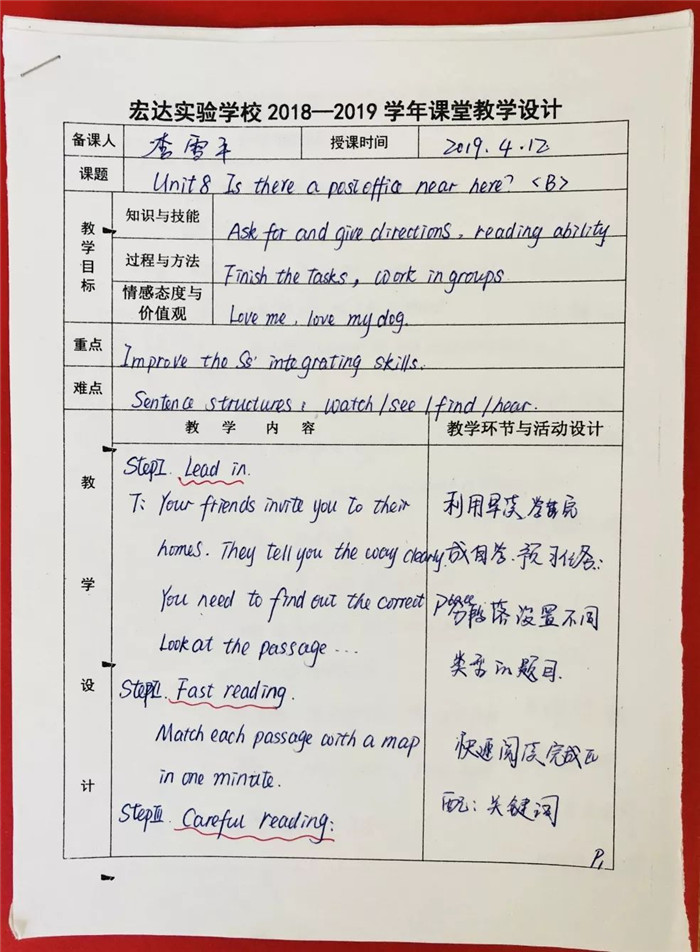 宏达实验学校2018—2019学年课堂教学设计
备课人 李雪平 授课时间 2019.4.12
课题 Unit 8 Is there a post office near here? <B>
教学目标
知识与技能 Ask for and give directions, reading ability
过程与方法 Finish the tasks, work in groups
情感态度与价值观 Love me, love my dog.
重点 Improve the Ss' integrating skills.
难点 Sentence structures: watch/see/find/hear.
教学设计
教学内容
Step I. Lead in.
T: Your friends invite you to their
homes. They tell you the way clearly.
You need to find out the correct place
Look at the passage ...
Step II. Fast reading.
Match each passage with a map
in one minute.
Step III. Careful reading:
教学环节与活动设计
利用早读 学案完
成自学.预习任务:
分段落设置不同
类型的题目.
快速阅读完成匹
配:关键词
P1